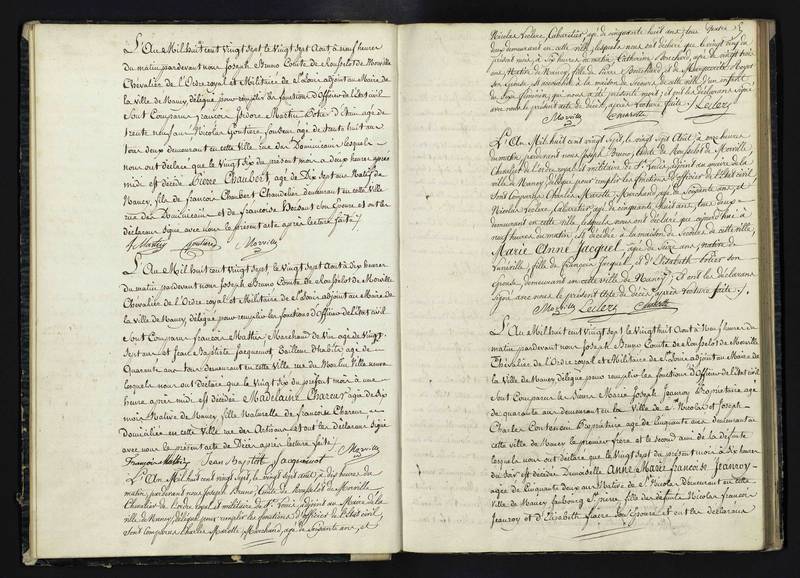 L'An Mil huit cent Vingt sept le Vingt sept Aout à neuf heures
du matin pardevant nous Joseph Bruno Comte de Rousselot de Morville
Chevalier de l'Ordre royal et Militaire de St Louis adjoint au Maire de
la ville de Nancy délégué pour remplir les fonctions d'Officier de l'Etat civil
Sont Comparus francois Isidore Martin Potier d'Etain agé de
trente neuf ans et Nicolas fondeur agé de trente huit ans
tous deux demeurant en cette Ville rue des Dominicains lesquels
nous ont déclaré que le Vingt six du présent mois a deux heures après
midi est décédé Pierre Chaubert, agé de Dix sept ans Natif de
Nancy, fils de francois Chaubert Chandelier demeurant en cette Ville
rue des Dominicains et de francoise son Epouse et ont les
déclarans signé avec nous le présent acte après lecture faite
Morville
L'An Mil huit cent Vingt sept, le Vingt sept Aout à dix heures
du matin, pardevant nous Joseph Bruno Comte de Rousselot de Morville
Chevalier de l'Ordre royal et Militaire de St Louis adjoint au Maire de
la Ville de Nancy, délégué pour remplir les fonctions d'Officier de l'Etat civil
Sont Comparus francois Mathieu Marchand de Vin agé de Vingt
Sept ans et Jean Baptiste Jacquemot Tailleur d'habits agé de
Quarante ans tous demeurant en cette Ville rue du Moulin
lesquels nous ont déclaré que le Vingt six du présent mois à une
heure après midi est décédée Madelaine Chareur agée de Six
mois Native de Nancy, fille Naturelle de francoise Chareur
Domiciliée en cette Ville rue des et ont les déclarans signé
avec nous le présent acte de Décès après lecture faite
François Jean Baptist Jacquemot Morville
L'An Mil huit cent vingt sept, le vingt sept août, à dix heures du
matin, pardevant nous Joseph Bruno, Comte de Rousselot de Morville
Chevalier de l'ordre royal et militaire de St Louis, adjoint au Maire de la
ville de Nancy, délégué pour remplir les fonctions d'officier de l'Etat civil,
sont comparus Charles Marchand, agé de soixante ans, et
Nicolas Leclerc, Cabaretier, agé de cinquante huit ans, tous
deux demeurant en cette ville, lesquels nous ont déclaré que le vingt six du
présent mois, à six heures du matin, Catherine Bouchard, agée de vingt trois
ans, Native de Nancy, fille de Pierre Bouchard, et de Marguerite Mayer
son épouse, à la maison de Secours de cette ville, d'un enfant
du sexe féminin, qui nous a été présenté mort; et ont les déclarans signé
avec nous le présent acte de décès, après lecture faite.
Morville Leclerc
L'An Mil huit cent vingt sept, le vingt sept Août, à onze heures
du matin, pardevant nous Joseph Bruno, Comte de Rousselot de Morville,
Chevalier de l'ordre royal et militaire de St Louis, adjoint au maire de la
ville de Nancy délégué pour remplir les fonctions d'officier de l'Etat civil,
sont comparus Charles Marchand, agé de soixante ans, et
Nicolas Leclerc, Cabaretier agé de cinquante huit ans, tous deux
demeurant en cette ville, lesquels nous ont déclaré que aujourd'hui à
neuf heures du matin, est décédée à la maison de Secours de cette ville,
Marie Anne Jacquel, agée de Seize ans, native de
Lunéville, fille de François Jacquel, et d'Elisabeth son
épouse, demeurant en cette ville de Nancy; et ont les déclarans
signé avec nous le présent Acte de décès après lecture faite.
Morville Leclerc
L'An Mil huit cent vingt sept le Vingt huit Aout à Neuf heures du
matin pardevant nous Joseph Bruno Comte de Rousselot de Morville
Chevalier de l'Ordre royal et Militaire de St Louis adjoint au Maire de
la Ville de Nancy délégué pour remplir les fonctions d'Officier de l'Etat civil
Sont Comparus les Sieurs Marie Joseph Jeanroy Propriétaire agé
de quarante ans demeurant en la Ville de St Nicolas et Joseph
Charles Propriétaire agé de Cinquante ans demeurant en
cette ville de Nancy le premier frère et le second ami de la défunte
lesquels nous ont déclaré que le Vingt sept du présent mois à dix heures
du soir est décédée Demoiselle Anne Marie francoise Jeanroy
agée de Cinquante deux ans Native de St Nicolas Demeurant en cette
Ville de Nancy faubourg St Pierre fille des défunts Nicolas francois
Jeanroy et d'Elisabeth son Epouse et ont les déclarans